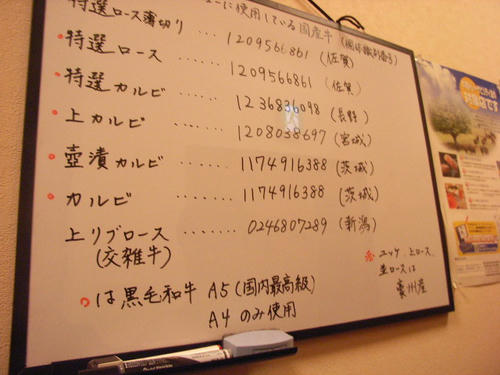 ューに使用している国産牛 (個体識別番号)
特選ロース薄切り ... 1209566861 (佐賀)
特選ロース ...... 1209566861 (佐賀)
特選カルビ ...... 1236836098 (長野)
上カルビ ....... 1208038697 (宮城)
壺漬カルビ ...... 1174916388 (茨城)
カルビ ....... 1174916388 (茨城)
上リブロース ....... 0246807289 (新潟)
(交雑牛)
は黒毛和牛 A5(国内最高級)
A4のみ使用
ユッケ、上ロース、
並ロースは
豪州産